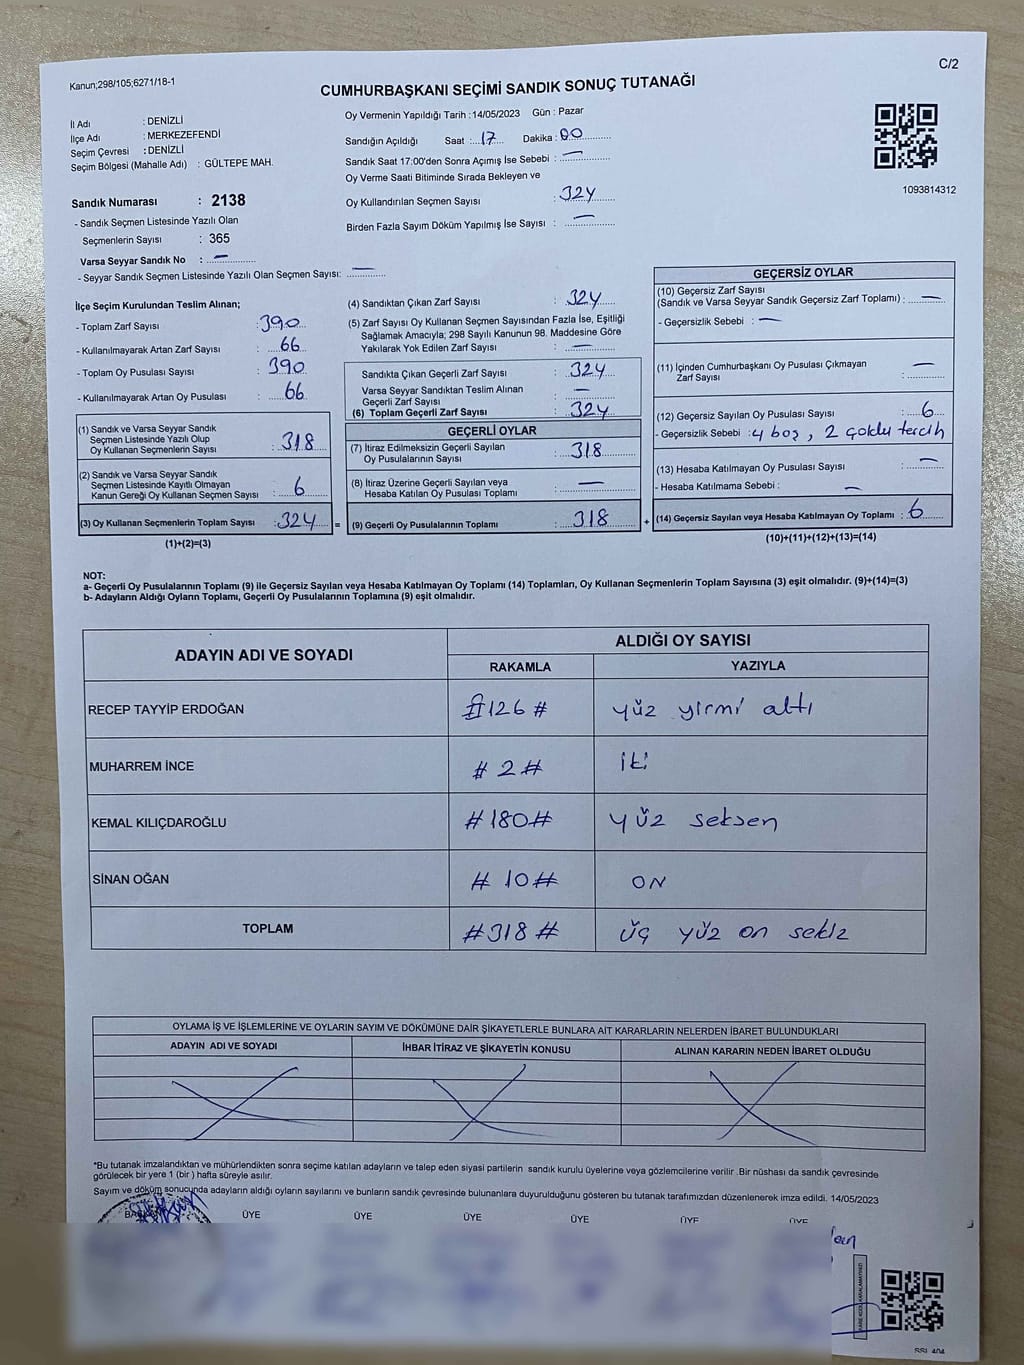 Kanun;298/105;6271/18-1
C/2
CUMHURBAŞKANI SEÇİMİ SANDIK SONUÇ TUTANAĞI
İl Adı : DENİZLİ
İlçe Adı : MERKEZEFENDİ
Seçim Çevresi : DENİZLİ
Seçim Bölgesi (Mahalle Adı) : GÜLTEPE MAH.
Sandık Numarası : 2138
- Sandık Seçmen Listesinde Yazılı Olan
Seçmenlerin Sayısı : 365
Varsa Seyyar Sandık No : —
- Seyyar Sandık Seçmen Listesinde Yazılı Olan Seçmen Sayısı: —
Oy Vermenin Yapıldığı Tarih :14/05/2023 Gün : Pazar
Sandığın Açıldığı Saat : 17 Dakika : 00
Sandık Saat 17:00'den Sonra Açımış İse Sebebi : —
Oy Verme Saati Bitiminde Sırada Bekleyen ve
Oy Kullandırılan Seçmen Sayısı : 324
Birden Fazla Sayım Döküm Yapılmış İse Sayısı : —
1093814312
İlçe Seçim Kurulundan Teslim Alınan;
- Toplam Zarf Sayısı : 390
- Kullanılmayarak Artan Zarf Sayısı : 66
- Toplam Oy Pusulası Sayısı : 390
- Kullanılmayarak Artan Oy Pusulası : 66
(1) Sandık ve Varsa Seyyar Sandık
Seçmen Listesinde Yazılı Olup
Oy Kullanan Seçmenlerin Sayısı : 318
(2) Sandık ve Varsa Seyyar Sandık
Seçmen Listesinde Kayıtlı Olmayan
Kanun Gereği Oy Kullanan Seçmen Sayısı : 6
(3) Oy Kullanan Seçmenlerin Toplam Sayısı : 324 =
(1)+(2)=(3)
(4) Sandıktan Çıkan Zarf Sayısı : 324
(5) Zarf Sayısı Oy Kullanan Seçmen Sayısından Fazla İse, Eşitliği
Sağlamak Amacıyla; 298 Sayılı Kanunun 98. Maddesine Göre
Yakılarak Yok Edilen Zarf Sayısı : —
Sandıkta Çıkan Geçerli Zarf Sayısı : 324
Varsa Seyyar Sandıktan Teslim Alınan
Geçerli Zarf Sayısı : —
(6) Toplam Geçerli Zarf Sayısı : 324
GEÇERLİ OYLAR
(7) İtiraz Edilmeksizin Geçerli Sayılan
Oy Pusulalarının Sayısı : 318
(8) İtiraz Üzerine Geçerli Sayılan veya
Hesaba Katılan Oy Pusulası Toplamı : —
(9) Geçerli Oy Pusulalarının Toplamı : 318 +
GEÇERSİZ OYLAR
(10) Geçersiz Zarf Sayısı
(Sandık ve Varsa Seyyar Sandık Geçersiz Zarf Toplamı) : —
- Geçersizlik Sebebi : —
(11) İçinden Cumhurbaşkanı Oy Pusulası Çıkmayan
Zarf Sayısı : —
(12) Geçersiz Sayılan Oy Pusulası Sayısı : 6
- Geçersizlik Sebebi : 4 boş, 2 çoklu tercih
(13) Hesaba Katılmayan Oy Pusulası Sayısı : —
- Hesaba Katılmama Sebebi : —
(14) Geçersiz Sayılan veya Hesaba Katılmayan Oy Toplamı : 6
(10)+(11)+(12)+(13)=(14)
NOT:
a- Geçerli Oy Pusulalarının Toplamı (9) ile Geçersiz Sayılan veya Hesaba Katılmayan Oy Toplamı (14) Toplamları, Oy Kullanan Seçmenlerin Toplam Sayısına (3) eşit olmalıdır. (9)+(14)=(3)
b- Adayların Aldığı Oyların Toplamı, Geçerli Oy Pusulalarının Toplamına (9) eşit olmalıdır.
ADAYIN ADI VE SOYADI
ALDIĞI OY SAYISI
RAKAMLA YAZIYLA
RECEP TAYYİP ERDOĞAN #126# yüz yirmi altı
MUHARREM İNCE #2# iki
KEMAL KILIÇDAROĞLU #180# yüz seksen
SİNAN OĞAN #10# ON
TOPLAM #318# üç yüz on sekiz
OYLAMA İŞ VE İŞLEMLERİNE VE OYLARIN SAYIM VE DÖKÜMÜNE DAİR ŞİKAYETLERLE BUNLARA AİT KARARLARIN NELERDEN İBARET BULUNDUKLARI
ADAYIN ADI VE SOYADI İHBAR İTİRAZ VE ŞİKAYETİN KONUSU ALINAN KARARIN NEDEN İBARET OLDUĞU
*Bu tutanak imzalandıktan ve mühürlendikten sonra seçime katılan adayların ve talep eden siyasi partilerin sandık kurulu üyelerine veya gözlemcilerine verilir .Bir nüshası da sandık çevresinde
görülecek bir yere 1 (bir ) hafta süreyle asılır.
Sayım ve döküm sonucunda adayların aldığı oyların sayılarını ve bunların sandık çevresinde bulunanlara duyurulduğunu gösteren bu tutanak tarafımızdan düzenlenerek imza edildi. 14/05/2023
BAŞKAN ÜYE ÜYE ÜYE ÜYE ÜYE ÜYE